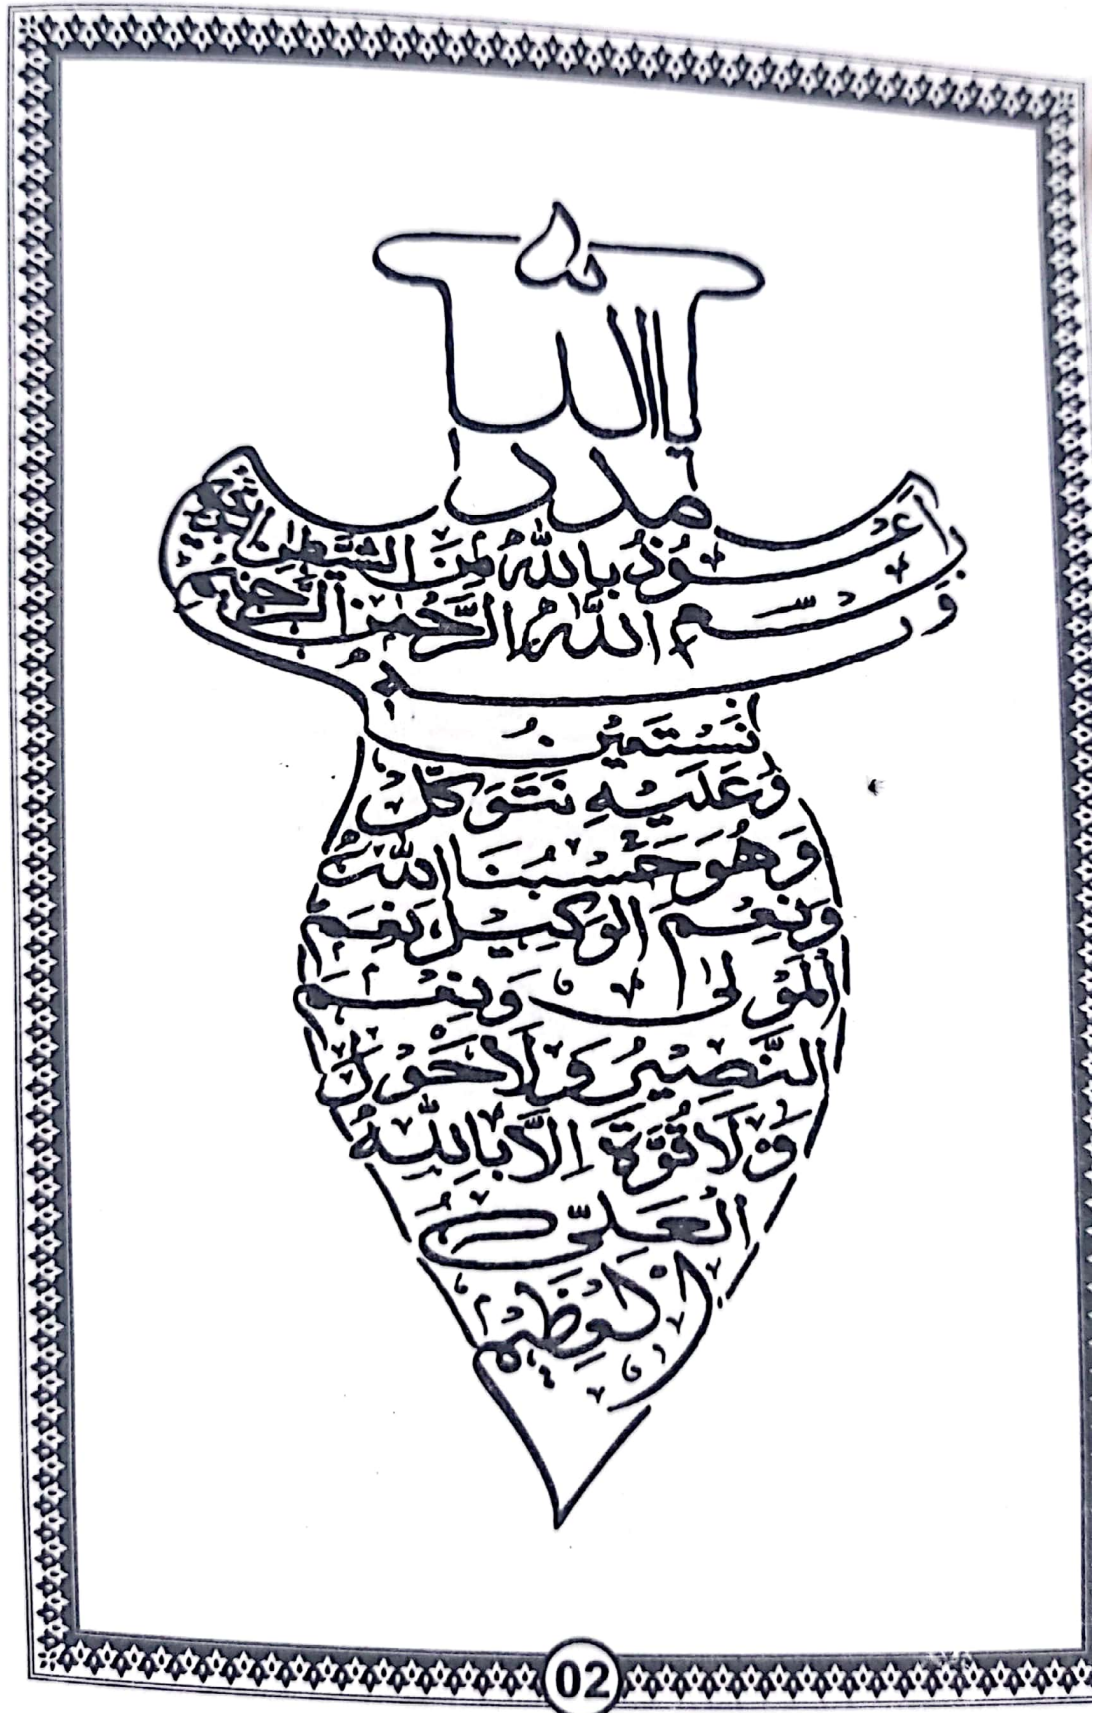 يا الله
مدد
أَعُوْذُ بِاللهِ مِنَ الشَّيْطٰنِ الرَّجِيْمِ
بِسْمِ اللهِ الرَّحْمٰنِ الرَّحِيْمِ
وَبِهٖ
نَسْتَعِيْنُ
وَعَلَيْهِ نَتَوَكَّلُ
وَهُوَ حَسْبُنَا اللهُ
وَنِعْمَ الْوَكِيْلُ نِعْمَ
الْمَوْلٰى وَنِعْمَ
النَّصِيْرُ وَلَا حَوْلَ
وَلَا قُوَّةَ اِلَّا بِاللهِ
الْعَلِيِّ
الْعَظِيْمِ
02